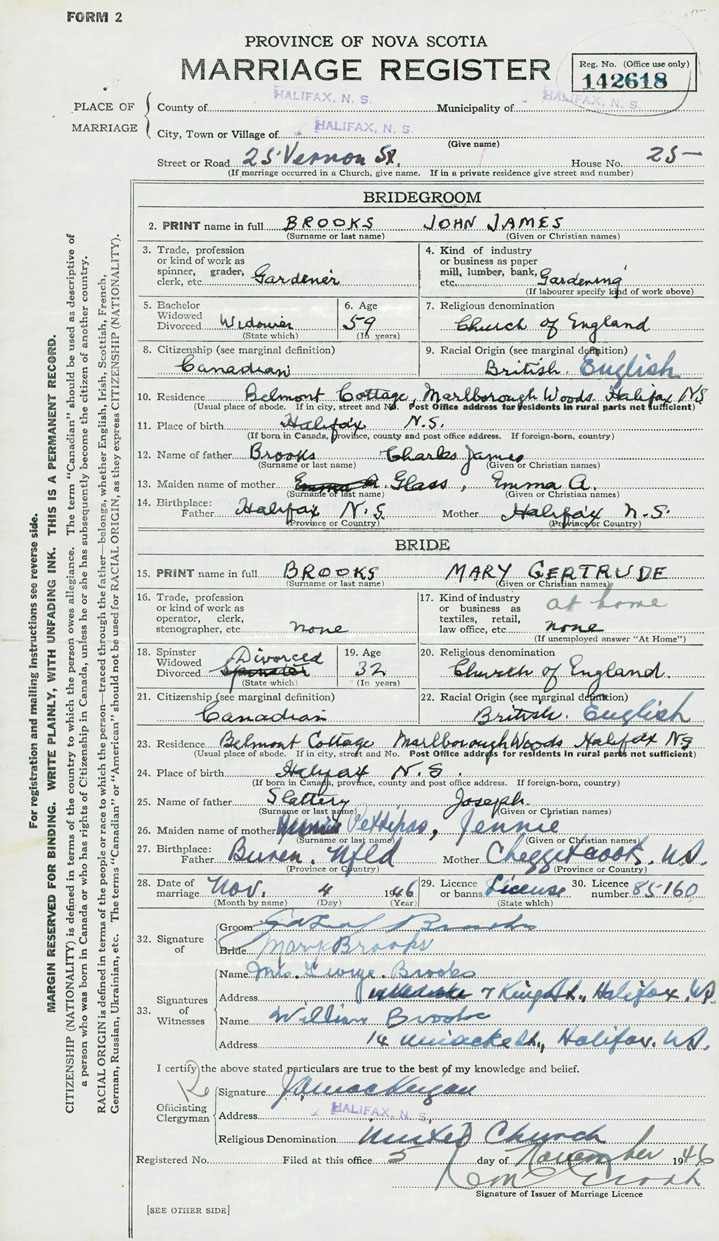 FORM 2
PROVINCE OF NOVA SCOTIA
MARRIAGE REGISTER
Reg. No. (Office use only)
142618
PLACE OF MARRIAGE
County of HALIFAX, N. S. Municipality of HALIFAX, N. S.
City, Town or Village of HALIFAX, N. S.
(Give name)
Street or Road 25 Vernon St. House No. 25
(If marriage occurred in a Church, give name. If in a private residence give street and number)
BRIDEGROOM
2. PRINT name in full BROOKS JOHN JAMES
(Surname or last name) (Given or Christian names)
3. Trade, profession or kind of work as spinner, grader, clerk, etc. Gardener
4. Kind of industry or business as paper mill, lumber, bank, etc. Gardening
(If labourer specify kind of work above)
5. Bachelor Widowed Divorced Widower
(State which)
6. Age 59
(In years)
7. Religious denomination
Church of England
8. Citizenship (see marginal definition)
Canadian
9. Racial Origin (see marginal definition)
British English
10. Residence Belmont Cottage, Marlborough Woods Halifax NS
(Usual place of abode. If in city, street and No. Post Office address for residents in rural parts not sufficient)
11. Place of birth Halifax N.S.
(If born in Canada, province, county and post office address. If foreign-born, country)
12. Name of father Brooks Charles James
(Surname or last name) (Given or Christian names)
13. Maiden name of mother Emma A. Glass, Emma A.
(Surname or last name) (Given or Christian names)
14. Birthplace: Father Halifax N.S. Mother Halifax N.S.
(Province or Country) (Province or Country)
BRIDE
15. PRINT name in full BROOKS MARY GERTRUDE
(Surname or last name) (Given or Christian names)
16. Trade, profession or kind of work as operator, clerk, stenographer, etc. none
17. Kind of industry or business as textiles, retail, law office, etc. at home none
(If unemployed answer "At Home")
18. Spinster Widowed Divorced Divorced Spinster
(State which)
19. Age 32
(In years)
20. Religious denomination
Church of England.
21. Citizenship (see marginal definition)
Canadian
22. Racial Origin (see marginal definition)
British. English
23. Residence Belmont Cottage Marlborough Woods Halifax NS
(Usual place of abode. If in city, street and No. Post Office address for residents in rural parts not sufficient)
24. Place of birth Halifax N.S.
(If born in Canada, province, county and post office address. If foreign-born, country)
25. Name of father Slattery Joseph
(Surname or last name) (Given or Christian names)
26. Maiden name of mother Pettipas, Jennie
(Surname or last name) (Given or Christian names)
27. Birthplace: Father Buren. Nfld Mother Chezzetcook. N.S.
(Province or Country) (Province or Country)
28. Date of marriage Nov. 4 1946
(Month by name) (Day) (Year)
29. Licence or banns License
(State which)
30. Licence number 85160
32. Signature of
Groom Brooks
Bride Mary Brooks
33. Signatures of Witnesses
Name Mrs. George Brooks
Address 7 King St., Halifax, N.S.
Name William Brooks
Address 14 Uniacke St., Halifax. N.S.
I certify the above stated particulars are true to the best of my knowledge and belief.
Officiating Clergyman
Signature
Address HALIFAX, N. S.
Religious Denomination United Church
Registered No. Filed at this office 5 day of November 1946
Signature of Issuer of Marriage Licence
[SEE OTHER SIDE]
For registration and mailing instructions see reverse side.
MARGIN RESERVED FOR BINDING. WRITE PLAINLY, WITH UNFADING INK. THIS IS A PERMANENT RECORD.
CITIZENSHIP (NATIONALITY) is defined in terms of the country to which the person owes allegiance. The term "Canadian" should be used as descriptive of
a person who was born in Canada or who has rights of Citizenship in Canada, unless he or she has subsequently become the citizen of another country.
RACIAL ORIGIN is defined in terms of the people or race to which the person—traced through the father—belongs, whether English, Irish, Scottish, French,
German, Russian, Ukrainian, etc. The terms "Canadian" or "American" should not be used for RACIAL ORIGIN, as they express CITIZENSHIP (NATIONALITY).